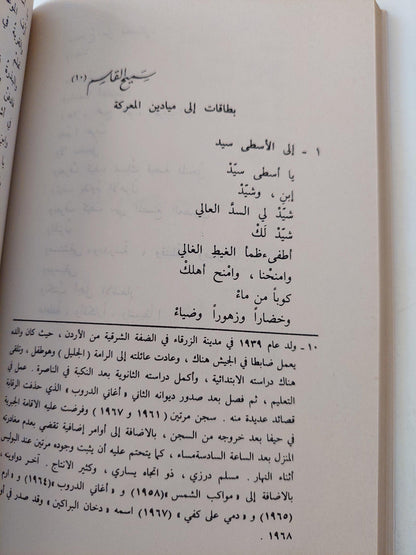 سميح القاسم (١٠)
بطاقات إلى ميادين المعركة
١ - إلى الأسطى سيد
يا أسطى سيّدْ
إبنِ ، وشيّدْ
شيّدْ لي السدَّ العالي
شيّدْ لَكْ
أطفىء ظمأَ الغيطِ الغالي
وامنحْنا ، وامْنح أهلكْ
كوباً من ماءْ
وخضاراً وزهوراً وضياءْ
١٠ - ولد عام ١٩٣٩ في مدينة الزرقاء في الضفة الشرقية من الأردن ، حيث كان والده
يعمل ضابطا في الجيش هناك ، وعادت عائلته إلى الرامة (الجليل) وهوطفل ، وتلقى
هناك دراسته الابتدائية ، وأكمل دراسته الثانوية بعد النكبة في الناصرة . عمل في
التعليم ، ثم فصل بعد صدور ديوانه الثاني « أغاني الدروب » الذي حذفت الرقابة
قصائد عديدة منه . سجن مرتين (١٩٦١ و ١٩٦٧) وفرضت عليه الاقامة الجبرية
في حيفا بعد خروجه من السجن ، بالاضافة إلى أوامر إضافية تقضي بعدم مغادرته
المنزل بعد الساعة السادسةمساء ، كما يتحتم عليه أن يثبت وجوده مرتين عند البوليس
أثناء النهار . مسلم درزي ، ذو اتجاه يساري ، وكثير الانتاج . آخر دواوينه ،
بالاضافة إلى « مواكب الشمس »(١٩٥٨) و « أغاني الدروب »(١٩٦٤) و « ارم
(١٩٦٥) و « دمي على كفي » (١٩٦٧) اسمه « دخان البراكين » وقد صدر في أو
١٩٦٨ .